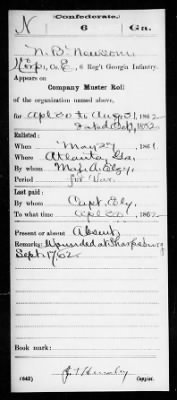 Confederate.
N 6 Ga.
N. B. Newsom
Corp, Co. E, 6 Reg't Georgia Infantry.
Appears on
Company Muster Roll
of the organization named above,
for Apl 30 to Aug 31, 1862
Dated Oct , 1862
Enlisted:
When May 27, 1861
Where Atlanta, Ga.
By whom Maj. A.
Period for War.
Last paid:
By whom Capt. Ely
To what time Apl 30, 1862
Present or absent Absent
Remarks: Wounded at Sharpsburg
Sept 17/62
Book mark:
(642) Copyist.